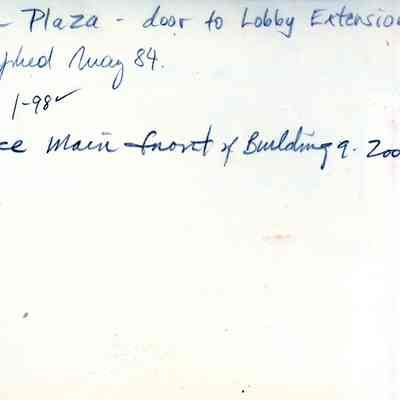 - Plaza - door to Lobby Extension
phed May 84.
1-98✓
ce Main front of Building 9. 200